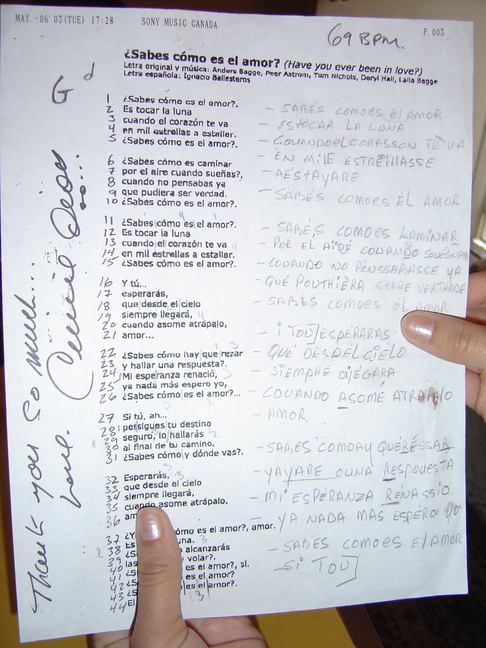 MAY. -06' 03(TUE) 17:28 SONY MUSIC CANADA P. 003
69 BPM.
¿Sabes cómo es el amor? (Have you ever been in love?)
Letra original y música: Anders Bagge, Peer Astrom, Tom Nichols, Daryl Hall, Laila Bagge
Letra española: Ignacio Ballesteros
1 ¿Sabes cómo es el amor?.
2 Es tocar la luna
3 cuando el corazón te va
4 en mil estrellas a estallar.
5 ¿Sabes cómo es el amor?.
6 ¿Sabes cómo es caminar
7 por el aire cuando sueñas?,
8 cuando no pensabas ya
9 que pudiera ser verdad.
10 ¿Sabes cómo es el amor?.
11 ¿Sabes cómo es el amor?.
12 Es tocar la luna
13 cuando el corazón te va
14 en mil estrellas a estallar.
15 ¿Sabes cómo es el amor?.
16 Y tú...
17 esperarás,
18 que desde el cielo
19 siempre llegará,
20 cuando asome atrápalo,
21 amor...
22 ¿Sabes cómo hay que rezar
23 y hallar una respuesta?.
24 Mi esperanza renació,
25 ya nada más espero yo,
26 ¿Sabes cómo es el amor?...
27 Si tú, ah...
28 persigues tu destino
29 seguro, lo hallarás
30 al final de tu camino.
31 ¿Sabes cómo y dónde vas?.
32 Esperarás,
33 que desde el cielo
34 siempre llegará,
35 cuando asome atrápalo.
36 am
37 ¿Y es el amor?, amor.
38 Es una.
38 ¿Sa alcanzarás
39 las y volar?.
40 ¿S es el amor?, sí.
41 ¿S es el amor?.
42 ¿S es el amor?.
43 ¿S
44 El
- SABES COMOES el AMOR
- ESTOCAR LA LUNA
- COUANDOELCORASSON TE VA
- EN MILE ESTREILLASSE
- AESTAYARE
- SABES COMOES EL AMOR
- SABES COMOES CAMINAR
- POR EL AIRÉ COUANDO
- COUANDO NO PENSSABASSE YA
- QUÉ POUTHIÉRA SERRE VERTHADE
- SABES COMOES el AMOR
- i TOU ESPÉRARAS
- QUE DESDELCIELO
- SIEMPRE
- COUANDO ASOMÉ ATRAPALO
- AMOR
- SABES COMOAY QUÉRÉSSAR
- YAYARE OUNA RESPOUESTA
- MI ESPERANZA RENASSIO
- YA NADA MAS ESPERO YO
- SABES COMOES El AMOR
- SI TOU
Thank you so much...
Love. Celine Dion